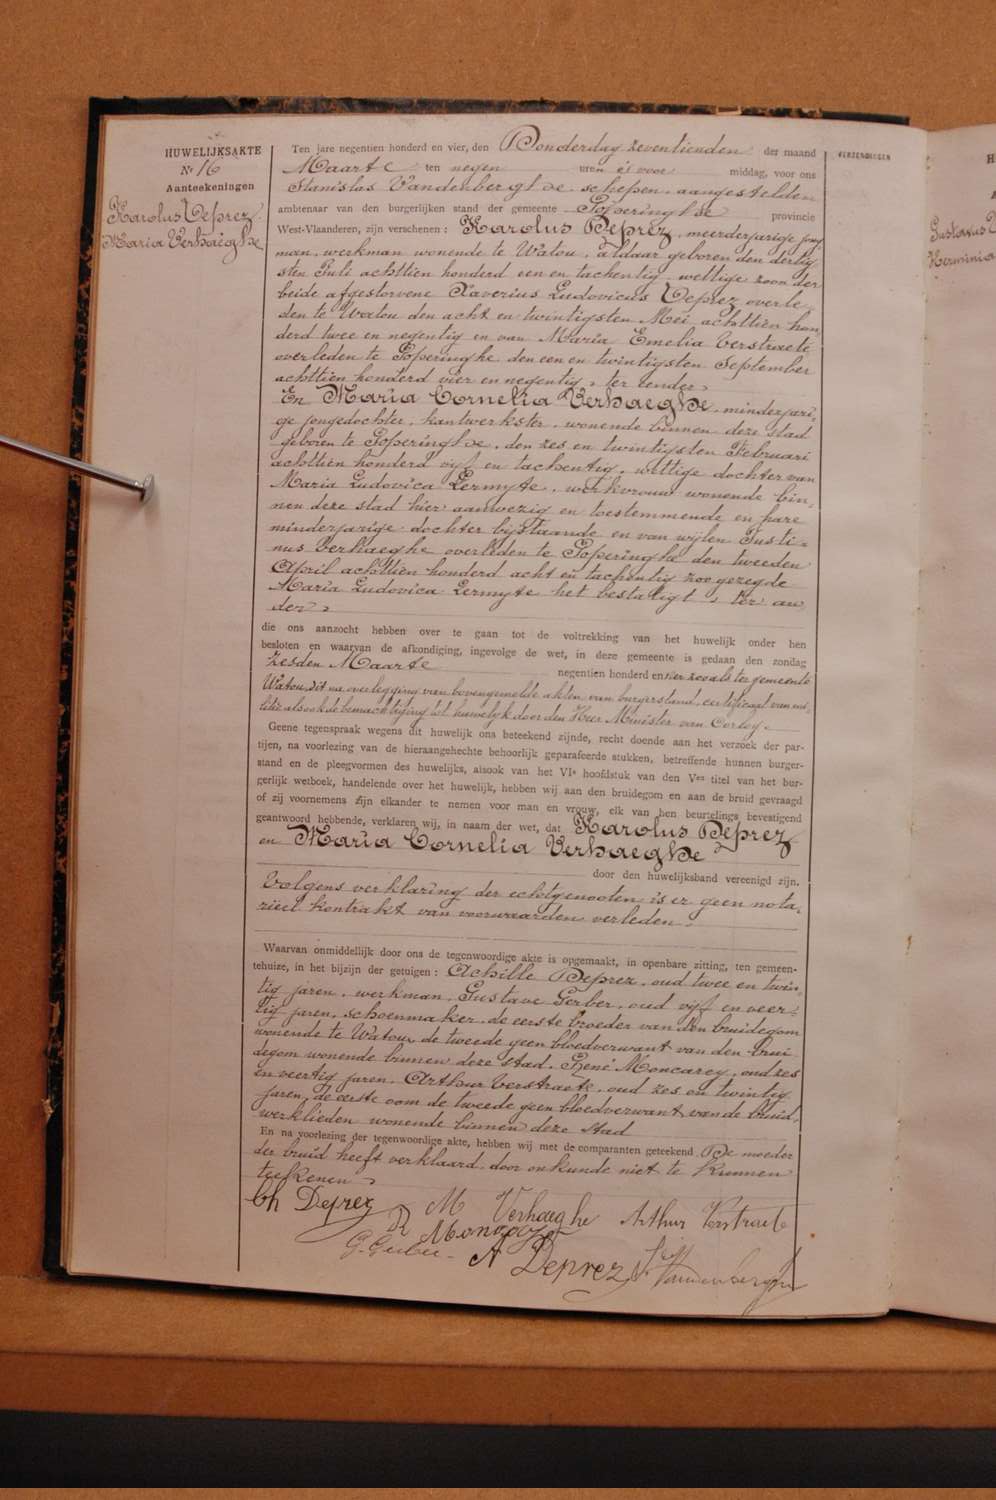 HUWELIJKSAKTE
Nr 16
Aanteekeningen
Karolus Deprez
Maria Verhaeghe
Ten jare negentien honderd en vier, den Donderdag zeventienden der maand
Maarte ten negen uren is voor middag, voor ons
Stanislas Vandenberghe schepen aangestelden
ambtenaar van den burgerlijken stand der gemeente Poperinghe provincie
West-Vlaanderen, zijn verschenen : Karolus Deprez, meerderjarige jong
man, werkman wonende te Watou, aldaar geboren den dertig
sten Juli achttien honderd een en tachentig, wettige zoon der
beide afgestorvene Xaverius Ludovicus Deprez overle
den te Watou den acht en twintigsten Mei achttien hon
derd twee en negentig en van Maria Emelia Verstraete
overleden te Poperinghe den een en twintigsten September
achttien honderd vier en negentig, ter eender,
En Maria Cornelia Verhaeghe, minderjari-
ge jongedochter, kantwerkster, wonende binnen deze stad
geboren te Poperinghe, den zes en twintigsten Februari
achttien honderd vijf en tachentig, wettige dochter van
Maria Ludovica Lermyte, werkvrouw wonende bin-
nen deze stad hier aanwezig en toestemmende en hare
minderjarige dochter bijstaande en van wijlen Justi-
nus Verhaeghe overleden te Poperinghe den tweeden
April achttien honderd acht en tachentig zoo gezegde
Maria Ludovica Lermyte het bestatigt, ter an
der,
die ons aanzocht hebben over te gaan tot de voltrekking van het huwelijk onder hen
besloten en waarvan de afkondiging, ingevolge de wet, in deze gemeente is gedaan den zondag
zesden Maarte negentien honderd en vier zooals ter gemeente
Watou, dit na overlegging van bovengemelde akten van burgerstand, certificaat van mi-
litie alsook de bemachtiging tot huwelijk door den Heer Minister van Oorlog.
Geene tegenspraak wegens dit huwelijk ons beteekend zijnde, recht doende aan het verzoek der par-
tijen, na voorlezing van de hieraangehechte behoorlijk geparafeerde stukken, betreffende hunnen burger-
stand en de pleegvormen des huwelijks, alsook van het VIe hoofdstuk van den Ven titel van het bur-
gerlijk wetboek, handelende over het huwelijk, hebben wij aan den bruidegom en aan de bruid gevraagd
of zij voornemens zijn elkander te nemen voor man en vrouw, elk van hen beurtelings bevestigend
geantwoord hebbende, verklaren wij, in naam der wet, dat Karolus Deprez
en Maria Cornelia Verhaeghe
door den huwelijksband vereenigd zijn.
Volgens verklaring der echtgenooten is er geen nota-
rieel kontrakt van voorwaarden verleden.
Waarvan onmiddellijk door ons de tegenwoordige akte is opgemaakt, in openbare zitting, ten gemeen-
tehuize, in het bijzijn der getuigen : Achille Deprez, oud twee en twin-
tig jaren, werkman, Gustave Gerber, oud vijf en veer-
tig jaren, schoenmaker, de eerste broeder van den bruidegom
wonende te Watou, de tweede geen bloedverwant van den brui
degom wonende binnen deze stad, René Moncarey, oud zes
en veertig jaren, Arthur Verstraete, oud zes en twintig
jaren, de eerste oom de tweede geen bloedverwant van de bruid,
werklieden wonende binnen deze stad
En na voorlezing der tegenwoordige akte, hebben wij met de comparanten geteekend. De moeder
der bruid heeft verklaard door onkunde niet te kunnen
teekenen,
Ch Deprez M Verhaeghe Arthur Verstraete
G. Gerber A Deprez Vandenberghe
VERZENDINGEN
Gustavus
Herminia